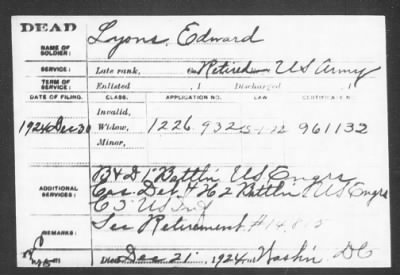 DEAD
NAME OF SOLDIER: Lyons, Edward
SERVICE: Late rank, Retired US Army
TERM OF SERVICE: Enlisted , 1 Discharged , 1
DATE OF FILING. CLASS. APPLICATION NO. LAW CERTIFICATE NO.
Invalid,
1924 Dec 30 Widow, 1226.932 961132
Minor,
ADDITIONAL SERVICES: B & D 1 Battln US Engrs
Det & 2 Battln US Engrs
E 3" US Inf
REMARKS: See Retirement #14,815
Died Dec 21" , 1924 at Washn DC